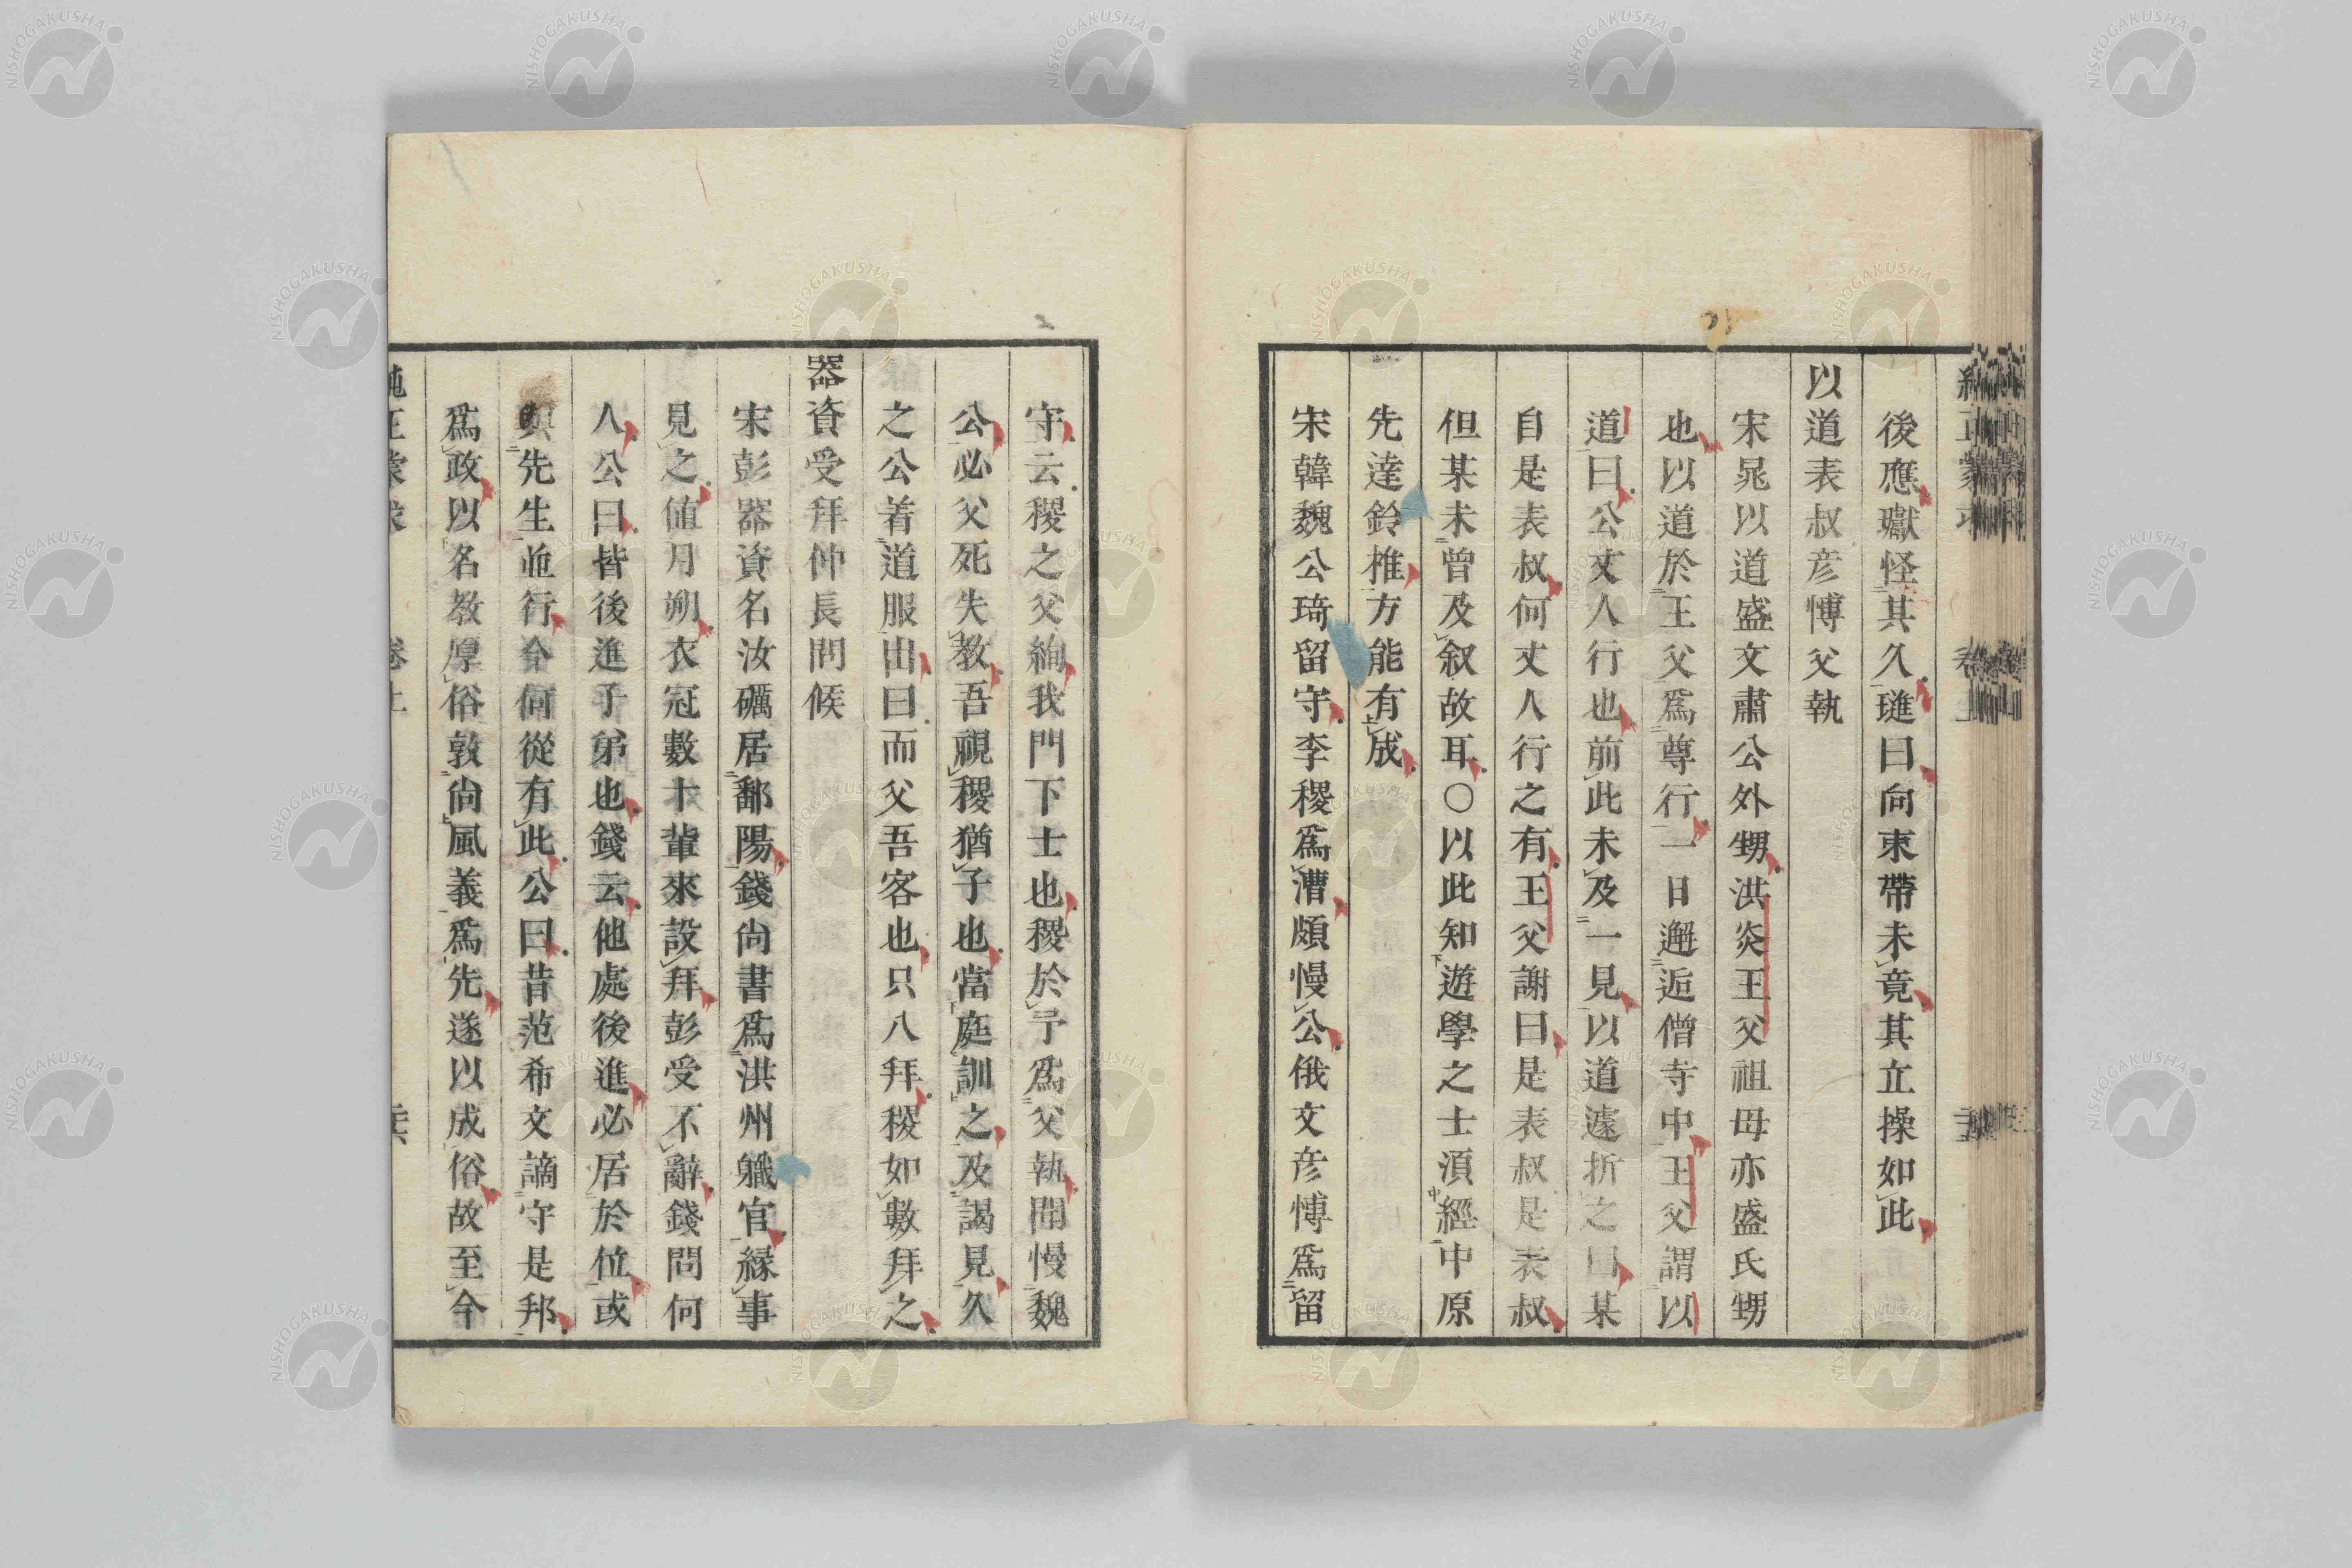 後應瓛怪其久璡曰向束帶未竟其立操如此
以道表叔彦愽父執
宋晁以道盛文肅公外甥洪炎王父祖母亦盛氏甥
也以道於王父爲尊行一日邂逅僧寺中王父謂以
道曰公丈人行也前此未及一見以道遽折之曰某
自是表叔何丈人行之有王父謝曰是表叔是表叔
但某未曾及叙故耳○以此知遊學之士湏經中原
先達鈴推方能有成
宋韓魏公琦留守李稷爲漕頗慢公俄文彦愽爲留
守云稷之父絢我門下士也稷於予爲父執聞慢魏
公必父死失教吾視稷猶子也當庭訓之及謁見久
之公着道服出曰而父吾客也只八拜稷如數拜之
器資受拜仲長問候
宋彭器資名汝礪居鄱陽錢尙書爲洪州軄官縁事
見之値月朔衣冠數十輩來設拜彭受不辭錢問何
人公曰皆後進子弟也錢云他處後進必居於位或
與先生並行今何從有此公曰昔范希文謫守是邦
爲政以名教厚俗敦尙風義爲先遂以成俗故至今
純正蒙求 卷上